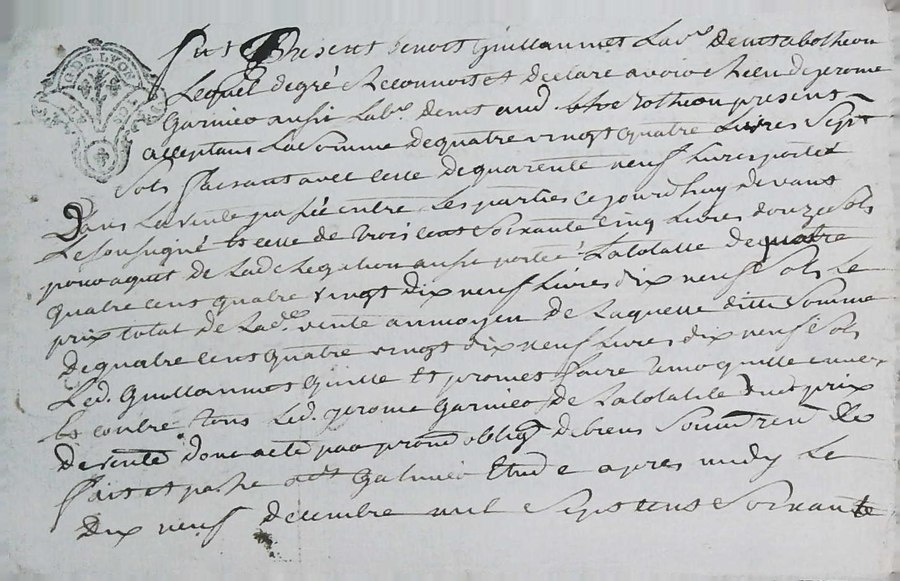 G DE LYON
fut Present Benoit Guillaumet Lab.r de
Lequel de gré a Reconnu et declaré avoir Receu de jerome
Garnier aussi Lab.r present
acceptant La somme de quatre vingt quatre Livres Sept
Sols faisant avec celle de quarente neuf Livres portée
Dans La vente passée entre Les parties ce jourd'huy devant
Le soussigné et celle de trois cent soixante cinq Livres douze sols
pour aquit de La delegation aussi portée La totalle de quatre
quatre cens quatre vingt dix neuf Livres dix neuf sols Le
prix total de Lad. vente au moyen de Laquelle ditte somme
de quatre cens quatre vingt dix neuf Livres dix neuf sols
Led. Guillaumet quitte et promet faire tenir quitte envers
et contre tous Led. jerome Garnier de La totalité dud. prix
de vente Dont acte par prom. oblig. de biens Soum. Ren.
fait et passé a St Galmier Etude apres midy Le
dix neuf decembre mil sept cens soixante